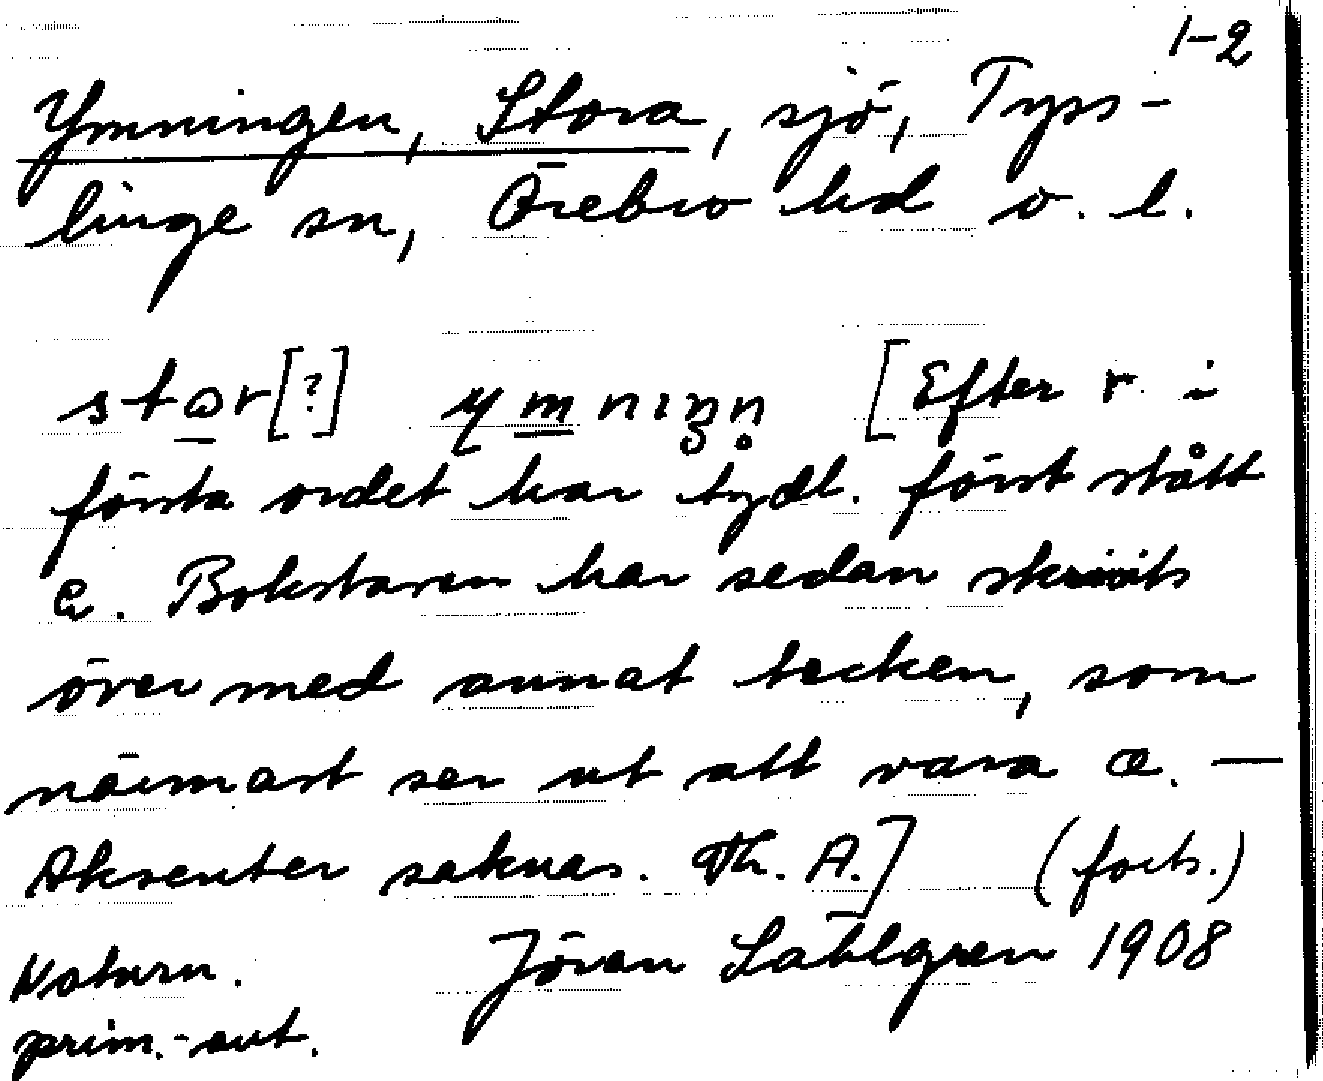 1-2
Ymningen, Stora, sjö, Tyss-
linge sn, Örebro hd ö. l.
stor[?] ymnıŋn̥ [Efter r i
första ordet har tydl. först stått
a. Bokstaven har sedan skrivits
över med annat tecken, som
närmast ser ut att vara æ. —
Aksenter saknas. Th. A.] (forts.)
Naturn. Jöran Sahlgren 1908
prim.-ant.